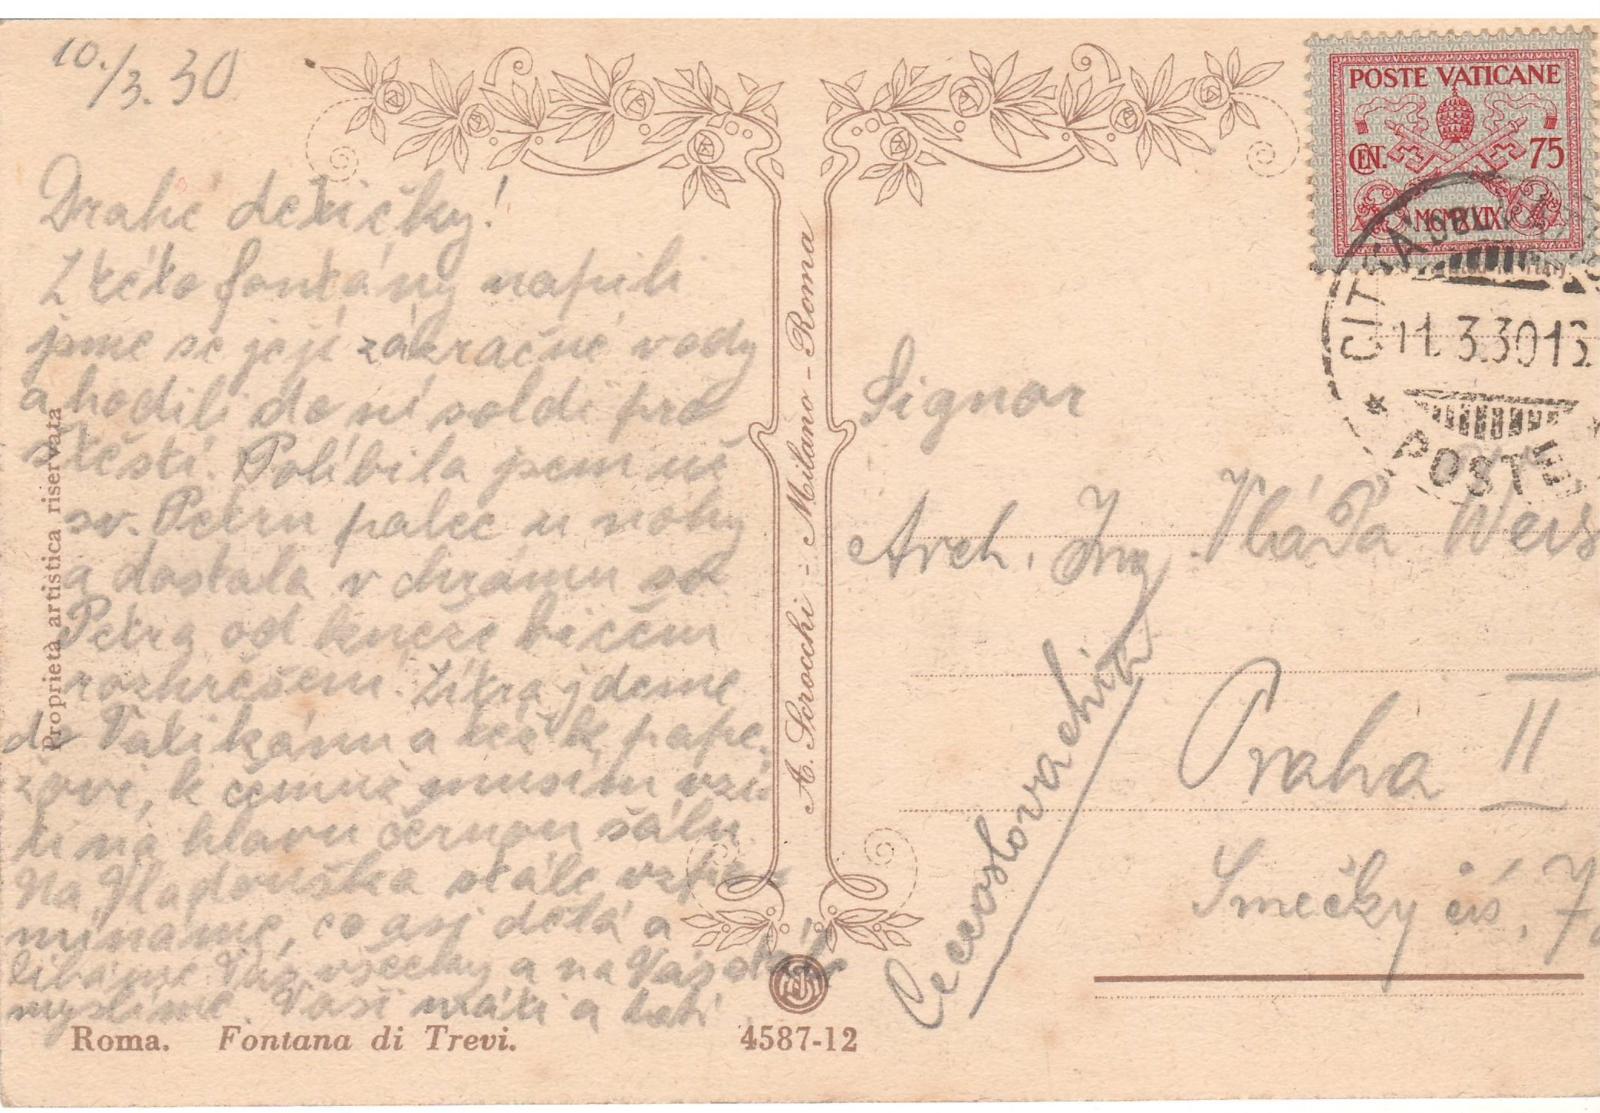 10./3. 30
Drahé dětičky!
Z této fontány napili
jsme se její zázračné vody
a hodili do ní soldi pro
štěstí. Políbila jsem už
sv. Petru palec u nohy
a dostala v chrámu sv.
Petra od kněze bičem
rozhřešení. Zítra jdeme
do Vatikánu a též k pape-
žovi, k čemuž musím vzí-
ti na hlavu černou šálu
Na Vladouška stále vzpo-
mínáme, co asi dělá a
líbáme Vás všecky a na Vás stále
myslíme. Vaši máti a tati
Proprietà artistica riservata
Roma. Fontana di Trevi.
4587-12
A. Scrocchi - Milano - Roma
POSTE VATICANE
CEN. 75
MCMXXIX
CITTÀ DEL
11.3.30 13
POSTE
Signor
Arch. Ing. Vláďa Weis
Praha II
Smečky čís. 7
Cecoslovachia